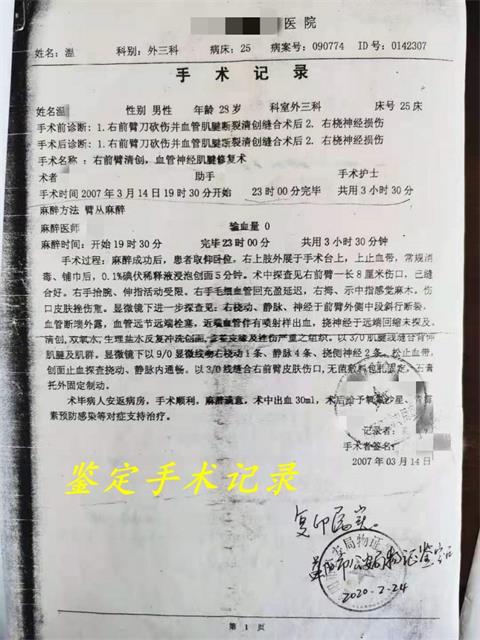 医院
姓名:温 科别:外三科 病床:25 病案号:090774 ID号:0142307
手术记录
姓名温 性别 男性 年龄 28岁 科室外三科 床号 25床
手术前诊断:1.右前臂刀砍伤并血管肌腱断裂清创缝合术后2.右桡神经损伤
手术后诊断:1.右前臂刀砍伤并血管肌腱断裂清创缝合术后2.右桡神经损伤
手术名称:右前臂清创,血管神经肌腱修复术
术者 助手 手术护士
手术时间2007年3月14日19时30分开始 23时00分完毕 共用3小时30分
麻醉方法 臂丛麻醉
麻醉医师 输血量 0
麻醉时间:开始19时30分 完毕23时00分 共用3小时30分钟
手术过程:麻醉成功后,患者取仰卧位,右上肢外展于手术台上,上止血带,常规消
毒、铺巾后,0.1%碘伏稀释液浸泡创面5分钟。术中探查见右前臂一长8厘米伤口,已缝
合好。右手抬腕、伸指活动受限。右手毛细血管回充盈延迟,右拇、示中指感觉麻木。伤
口皮肤挫伤重。显微镜下进一步探查见:右桡动、静脉、神经于前臂外侧中段斜行断裂,
血管断端外露,血管远节远端栓塞,近端血管有喷射样出血,挠神经于远端回缩未探及。
清创,双氧水,生理盐水反复冲洗创面,
肌腱及肌群。显微镜下以9/0显微线吻右桡动1条、静脉4条、挠侧神经2条。松止血带,
创面止血探查挠动、静脉内通畅。以3/0线缝合右前臂皮肤伤口,无菌敷料包扎固定。石膏
托外固定制动。
术毕病人安返病房,手术顺利,麻醉满意,术中出血30ml,术后给予氧氟沙星、青霉
素预防感染等对症支持治疗。
记录者:
手术者签名:
2007年03月14日
鉴定手术记录
复印属实
2020-2-24
第 1 页